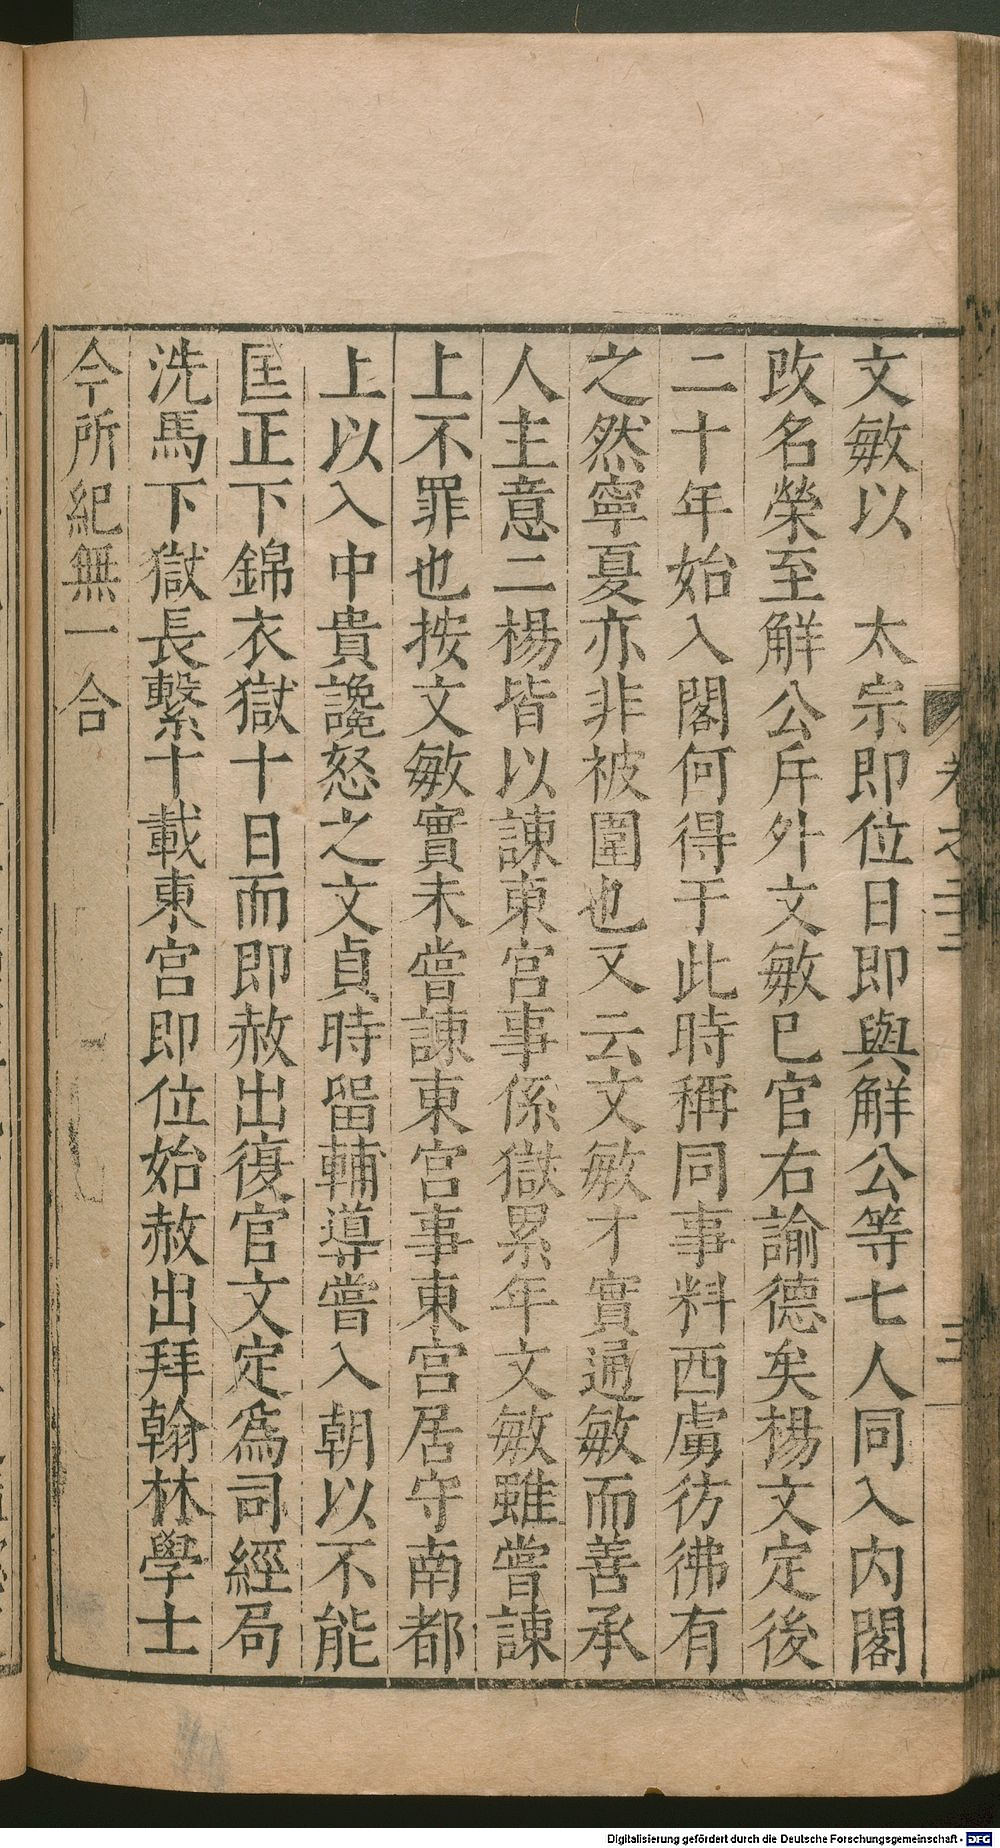 文敏以　太宗即位日即與解公等七人同入内閣
改名榮至解公斥外文敏已官右諭德矣楊文定後
二十年始入閣何得于此時稱同事料西虜彷彿有
之然寧夏亦非被圍也又云文敏才實通敏而善承
人主意二楊皆以諫東宮事係獄累年文敏雖嘗諫
上不罪也按文敏實未嘗諫東宮事東宮居守南都
上以入中貴讒怒之文貞時留輔導嘗入朝以不能
匡正下錦衣獄十日而即赦出復官文定為司經局
洗馬下獄長繫十載東宮即位始赦出拜翰林學士
今所紀無一合
卷之二三
三
Digitalisierung gefördert durch die Deutsche Forschungsgemeinschaft - DFG